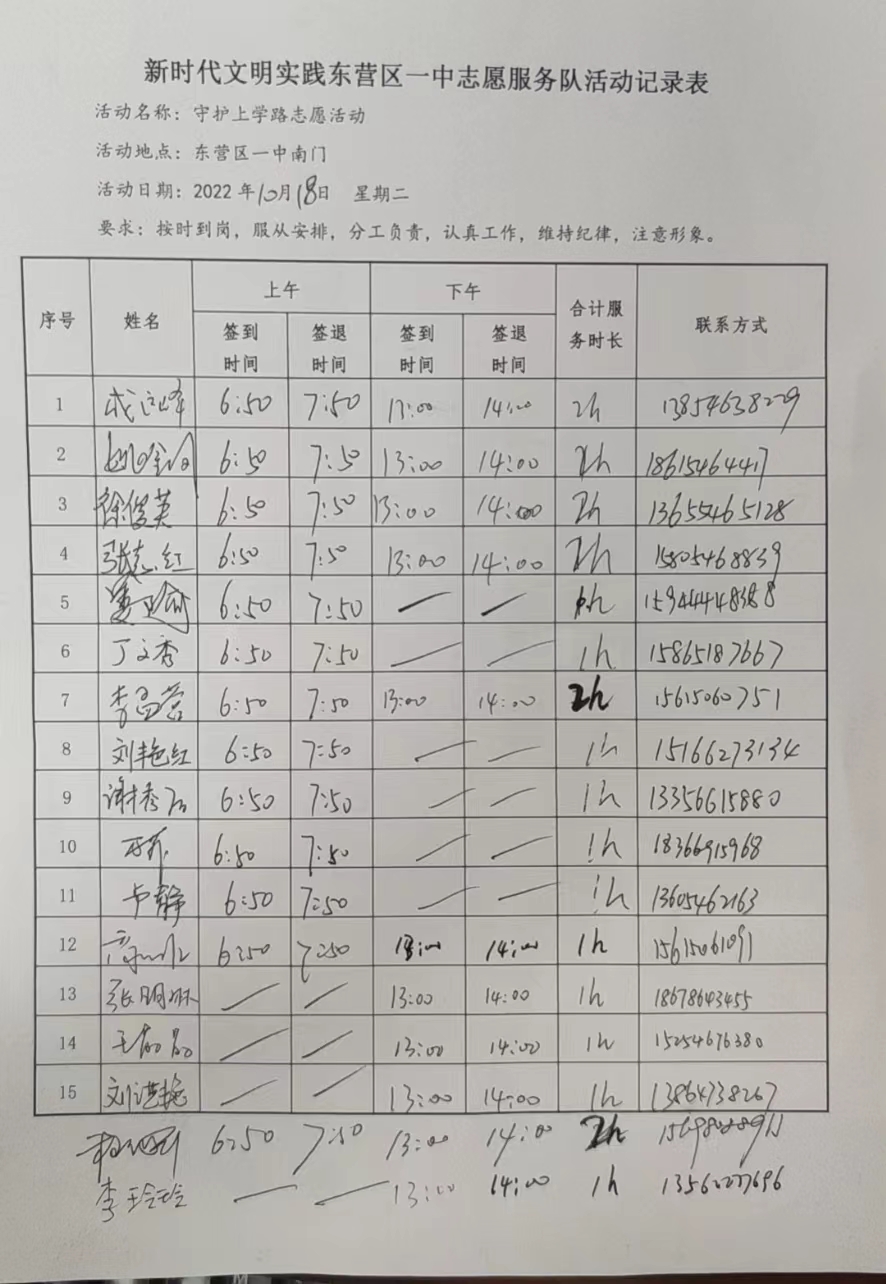 新时代文明实践东营区一中志愿服务队活动记录表
活动名称：守护上学路志愿活动
活动地点：东营区一中南门
活动日期：2022年10月18日 星期二
要求：按时到岗，服从安排，分工负责，认真工作，维持纪律，注意形象。
序号 姓名 上午 下午 合计服务时长 联系方式
签到时间 签退时间 签到时间 签退时间
1 6:50 7:50 13:00 14:00 2h 13854638229
2 6:50 7:50 13:00 14:00 2h 18615464417
3 徐俊英 6:50 7:50 13:00 14:00 2h 13655465128
4 张志红 6:50 7:50 13:00 14:00 2h 15805468839
5 6:50 7:50 — — 1h
6 丁文秀 6:50 7:50 — — 1h 15865187667
7 6:50 7:50 13:00 14:00 2h 15615060751
8 刘艳红 6:50 7:50 — — 1h 15166273134
9 6:50 7:50 — — 1h 13356615880
10 6:50 7:50 — — 1h 18366915968
11 卢静 6:50 7:50 — — 1h 13605462163
12 6:50 7:50 13:00 14:00 1h 15615061091
13 — — 13:00 14:00 1h 18678643455
14 — — 13:00 14:00 1h 15254676380
15 — — 13:00 14:00 1h 13864738267
6:50 7:50 13:00 14:00 2h
李玲玲 — — 13:00 14:00 1h